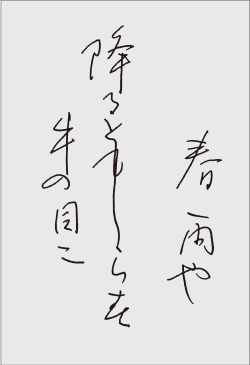 春雨や
降るともしらす
牛の目に